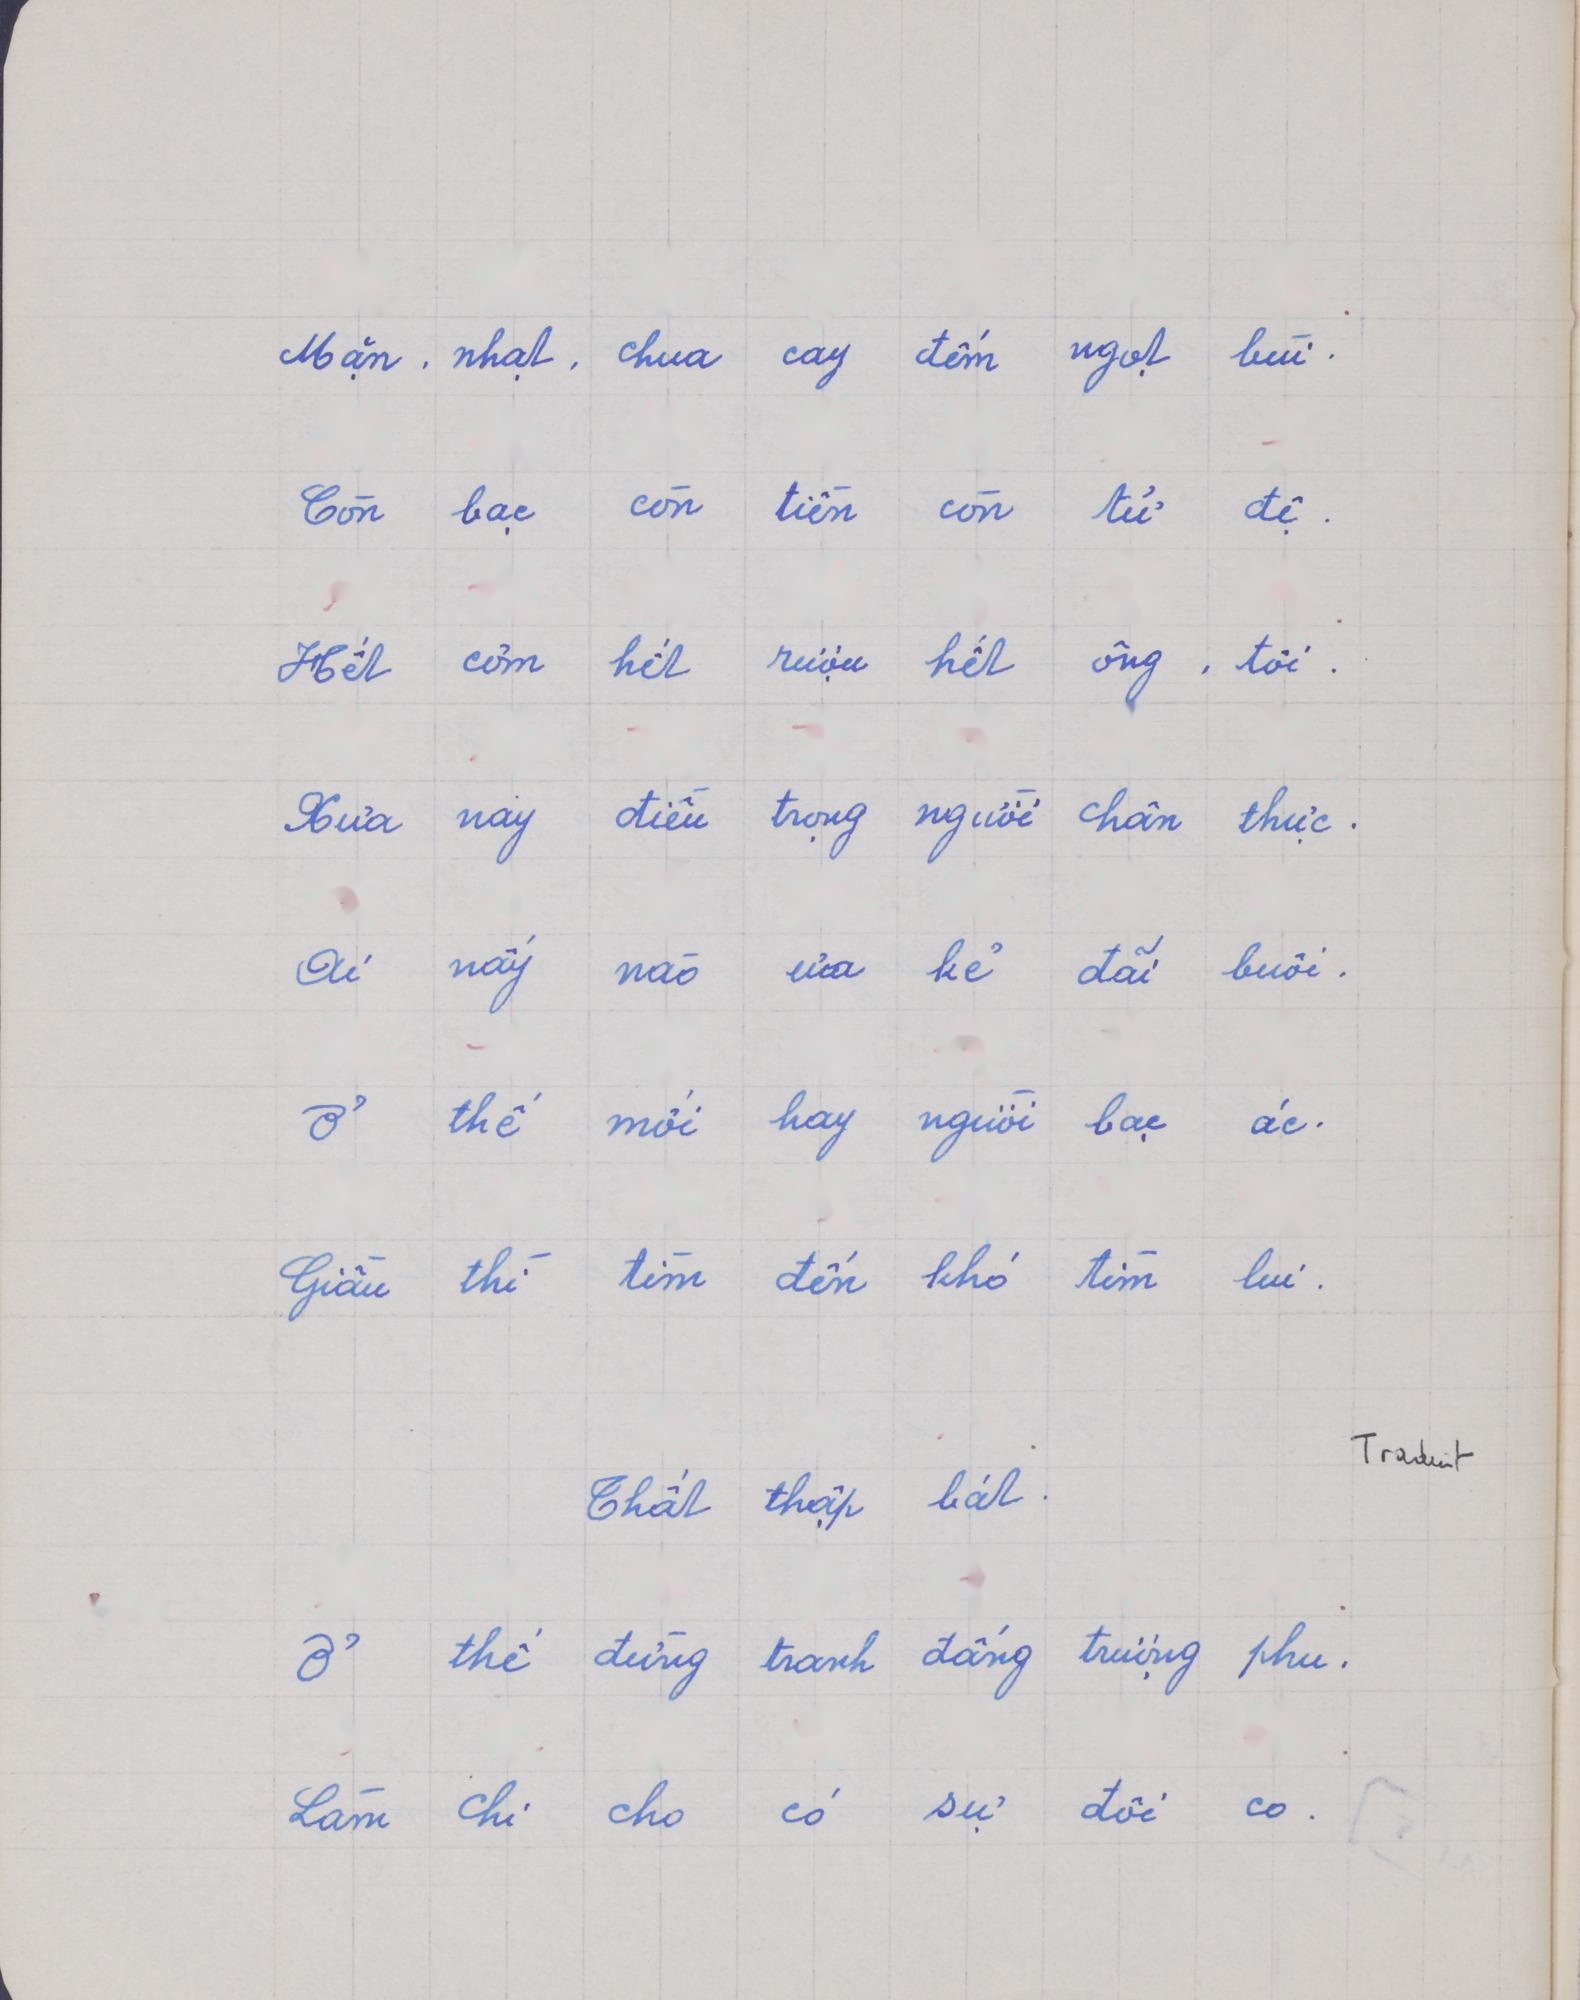 Mặn, nhạt, chua cay đếm ngọt bùi.
Còn bạc còn tiền còn tử đệ.
Hết cơm hết rượu hết ông, tôi.
Xưa nay điều trọng người chân thực.
Ai nấy nào ưa kẻ đãi buôi.
Ở thế mới hay người bạc ác.
Giầu thì tìm đến khó tìm lui.
Traduit
Thất thập bát.
Ở thế đừng tranh đấng trượng phu.
Làm chi cho có sự đôi co.